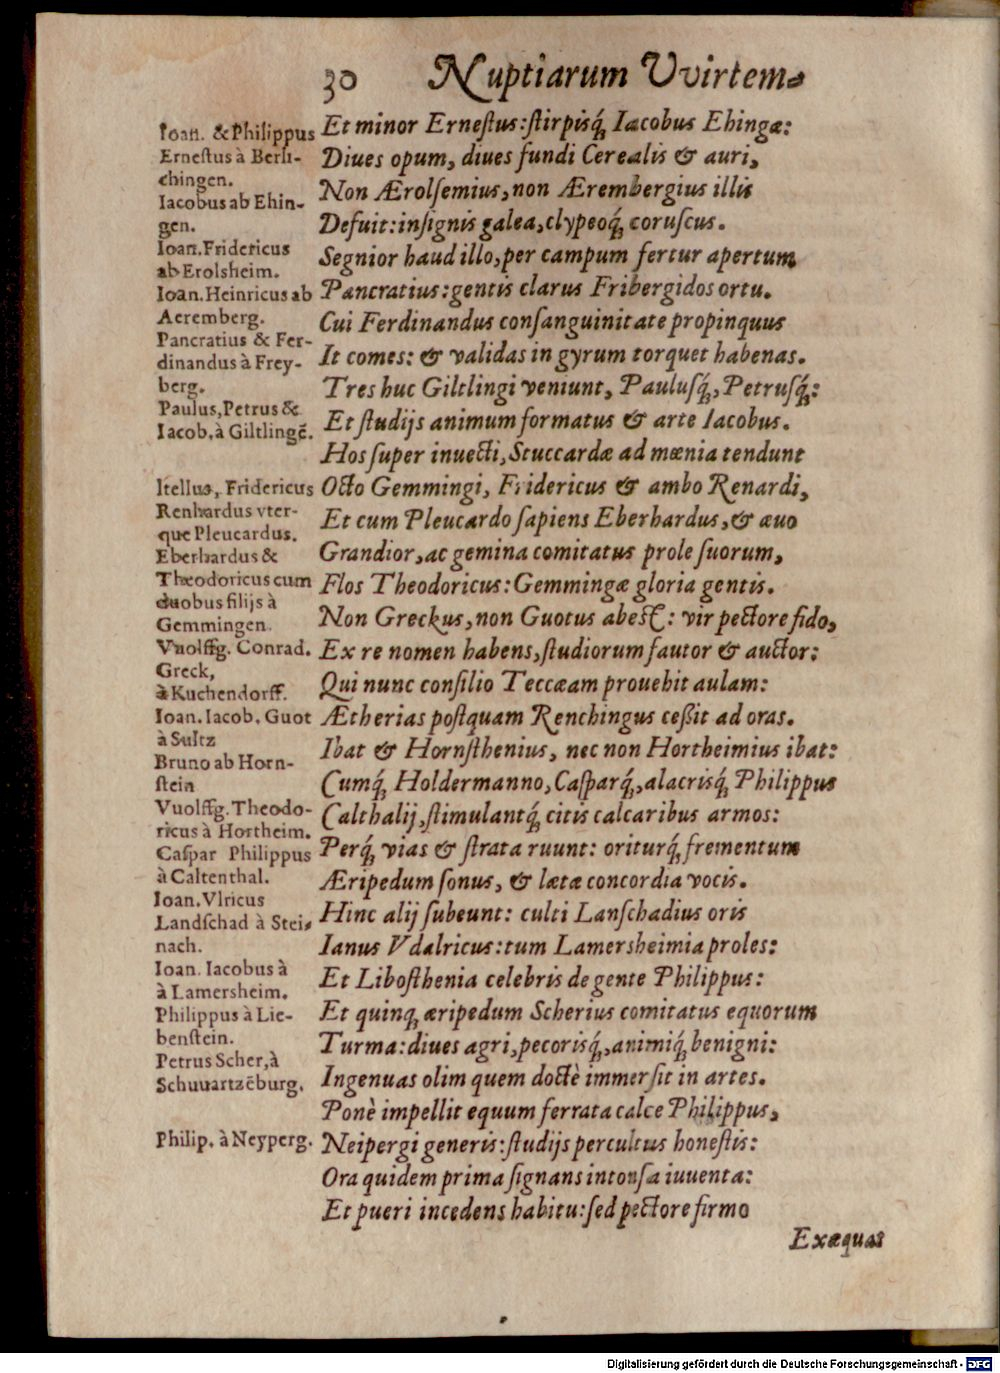 30 Nuptiarum Vvirtem-
Ioan. & Philippus
Ernestus à Berli-
chingen.
Iacobus ab Ehin-
gen.
Ioan. Fridericus
ab Erolsheim.
Ioan. Heinricus ab
Aeremberg.
Pancratius & Fer-
dinandus à Frey-
berg.
Paulus, Petrus &
Iacob. à Giltlingē.
Itellus, Fridericus
Renhardus vter-
que Pleucardus.
Eberhardus &
Theodoricus cum
duobus filijs à
Gemmingen.
Vuolffg. Conrad.
Greck,
à Kuchendorff.
Ioan. Iacob. Guot
à Sultz
Bruno ab Horn-
stein
Vuolffg. Theodo-
ricus à Hortheim.
Caspar Philippus
à Caltenthal.
Ioan. Vlricus
Landschad à Stei-
nach.
Ioan. Iacobus à
à Lamersheim.
Philippus à Lie-
benstein.
Petrus Scher, à
Schuuartzēburg.
Philip. à Neyperg.
Et minor Ernestus: stirpisq́; Iacobus Ehingæ:
Diues opum, diues fundi Cerealis & auri,
Non Ærolsemius, non Ærembergius illis
Defuit: insignis galea, clypeoq́; coruscus.
Segnior haud illo, per campum fertur apertum
Pancratius: gentis clarus Fribergidos ortu.
Cui Ferdinandus consanguinitate propinquus
It comes: & validas in gyrum torquet habenas.
Tres huc Giltlingi veniunt, Paulusq́;, Petrusq́;:
Et studijs animum formatus & arte Iacobus.
Hos super inuecti, Stuccardæ ad mœnia tendunt
Octo Gemmingi, Fridericus & ambo Renardi,
Et cum Pleucardo sapiens Eberhardus, & æuo
Grandior, ac gemina comitatus prole suorum,
Flos Theodoricus: Gemmingæ gloria gentis.
Non Greckus, non Guotus abest: vir pectore fido,
Ex re nomen habens, studiorum fautor & auctor:
Qui nunc consilio Teccæam prouehit aulam:
Ætherias postquam Renchingus ceßit ad oras.
Ibat & Hornsthenius, nec non Hortheimius ibat:
Cumq́; Holdermanno, Casparq́;, alacrisq́; Philippus
Calthalij, stimulantq́; citis calcaribus armos:
Perq́; vias & strata ruunt: oriturq́; frementum
Æripedum sonus, & lætæ concordia vocis.
Hinc alij subeunt: culti Lanschadius oris
Ianus Vdalricus: tum Lamersheimia proles:
Et Libosthenia celebris de gente Philippus:
Et quinq; æripedum Scherius comitatus equorum
Turma: diues agri, pecorisq́;, animiq́; benigni:
Ingenuas olim quem doctè immersit in artes.
Ponè impellit equum ferrata calce Philippus,
Neipergi generis: studijs percultus honestis:
Ora quidem prima signans intonsa iuuenta:
Et pueri incedens habitu: sed pectore firmo
Exæquat
Digitalisierung gefördert durch die Deutsche Forschungsgemeinschaft - DFG